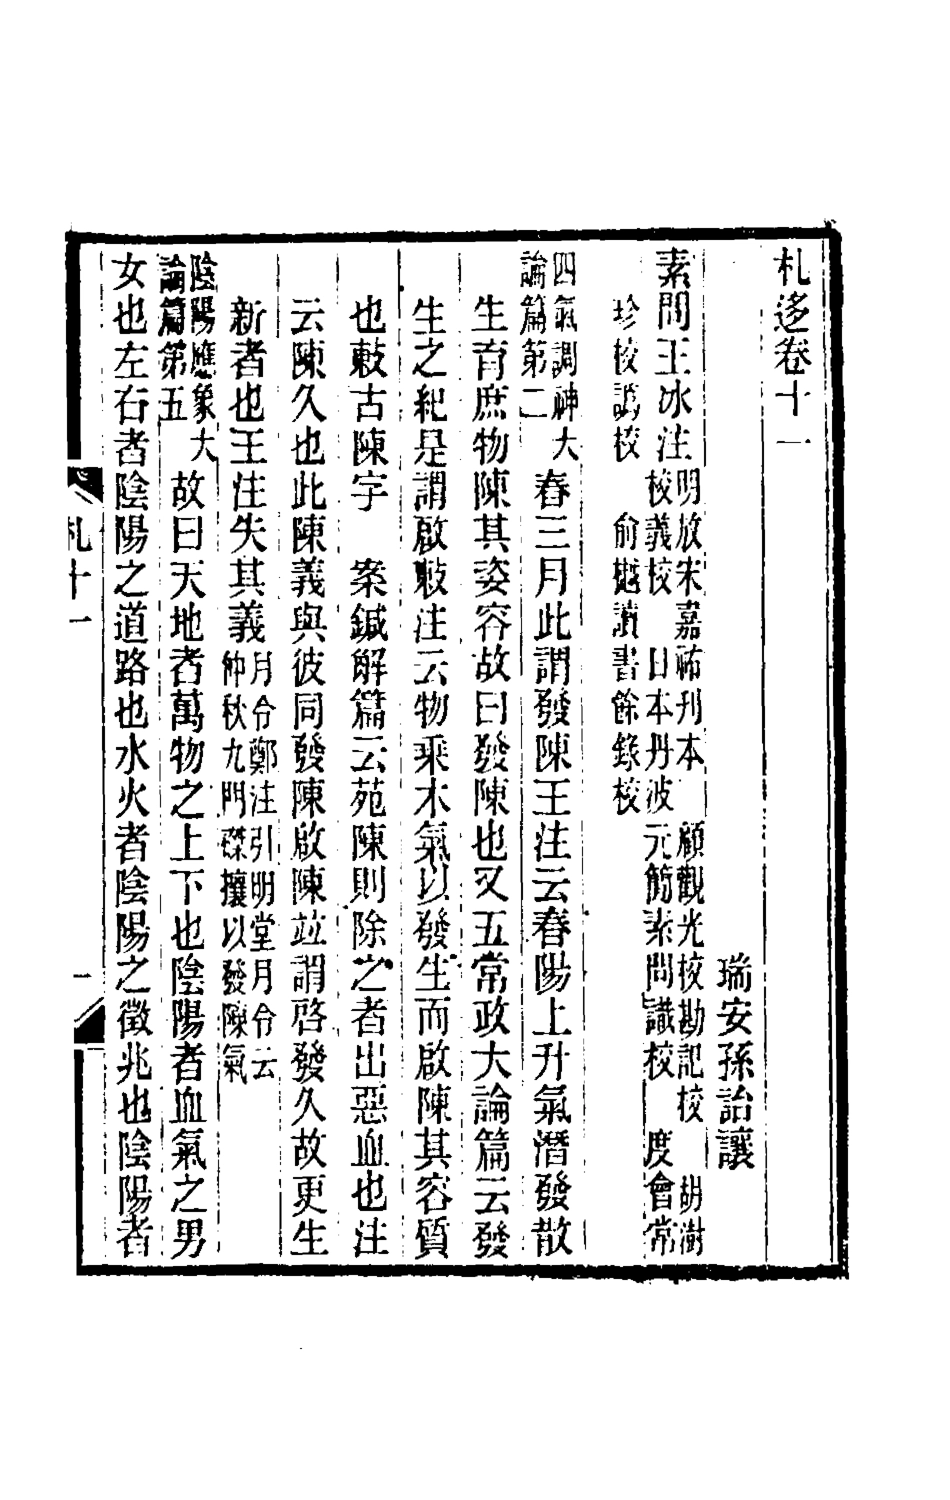 札迻卷十一
瑞安孫詒讓
素問王冰注
明放宋嘉祐刊本　顧觀光校勘記校　胡澍
校義校　日本丹波元簡素問識校　度會常
珍校譌校　俞樾讀書餘錄校
四氣調神大
論篇第二
春三月此謂發陳王注云春陽上升氣潛發散
生育庶物陳其姿容故曰發陳也又五常政大論篇云發
生之紀是謂啟敶注云物乘木氣以發生而啟陳其容質
也敶古陳字　案鍼解篇云菀陳則除之者出惡血也注
云陳久也此陳義與彼同發陳啟陳竝謂啓發久故更生
新者也王注失其義
月令鄭注引明堂月令云
仲秋九門磔攘以發陳氣
陰陽應象大
論篇第五
故曰天地者萬物之上下也陰陽者血氣之男
女也左右者陰陽之道路也水火者陰陽之徵兆也陰陽者
札十一
一